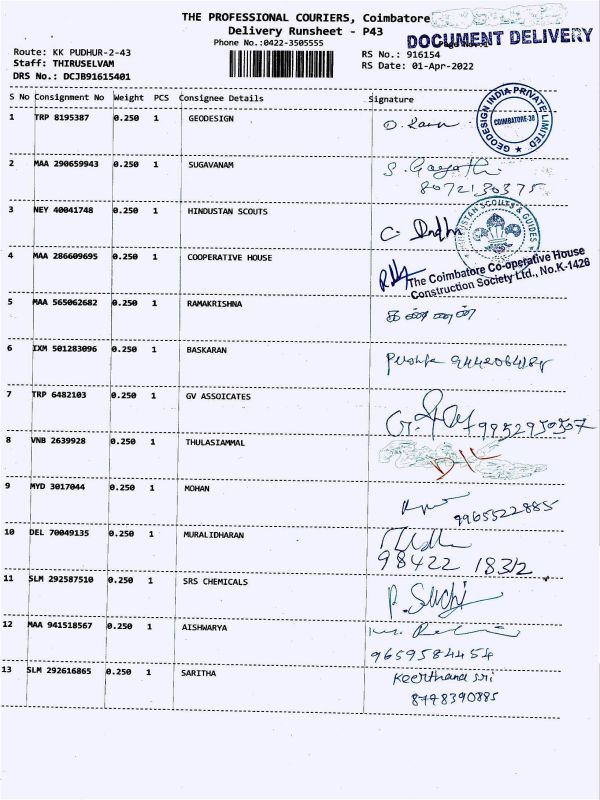 THE PROFESSIONAL COURIERS, Coimbatore
Delivery Runsheet - P43
Phone No.:0422-3505555
DOCUMENT DELIVERY
Route: KK PUDHUR-2-43
Staff: THIRUSELVAM
DRS No.: DCJB91615401
RS No.: 916154
RS Date: 01-Apr-2022
S No Consignment No Weight PCS Consignee Details Signature
1 TRP 8195387 0.250 1 GEODESIGN
GEODESIGN INDIA PRIVATE LIMITED
COIMBATORE-38
2 MAA 290659943 0.250 1 SUGAVANAM
8072130375
3 NEY 40041748 0.250 1 HINDUSTAN SCOUTS
HINDUSTAN SCOUTS & GUIDES
4 MAA 286609695 0.250 1 COOPERATIVE HOUSE
The Coimbatore Co-operative House
Construction Society Ltd., No.K-1426
5 MAA 565062682 0.250 1 RAMAKRISHNA
6 IXM 501283096 0.250 1 BASKARAN
7 TRP 6482103 0.250 1 GV ASSOICATES
8 VNB 2639928 0.250 1 THULASIAMMAL
D/L
9 MYD 3017044 0.250 1 MOHAN
9965522885
10 DEL 70049135 0.250 1 MURALIDHARAN
98422 18312
11 SLM 292587510 0.250 1 SRS CHEMICALS
P. Suchi
12 MAA 941518567 0.250 1 AISHWARYA
9659584454
13 SLM 292616865 0.250 1 SARITHA
Keerthana sri
8778390885